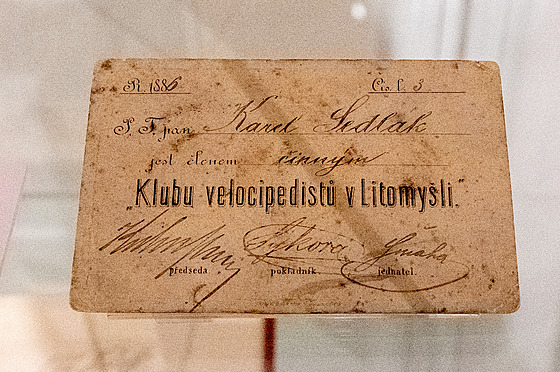 R. 1886 Čís. l. 3
P. T. pan Karel Sedlák
jest členem činným
„Klubu velocipedistů v Litomyšli."
předseda. pokladník. jednatel.